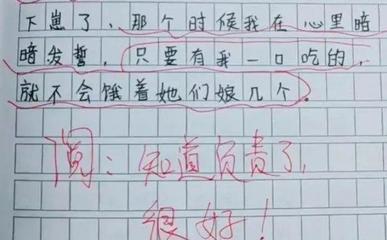 下崽了，那个时候我在心里暗
暗发誓，只要有我一口吃的，
就不会饿着她们娘几个。
阅：知道负责了，
很好！